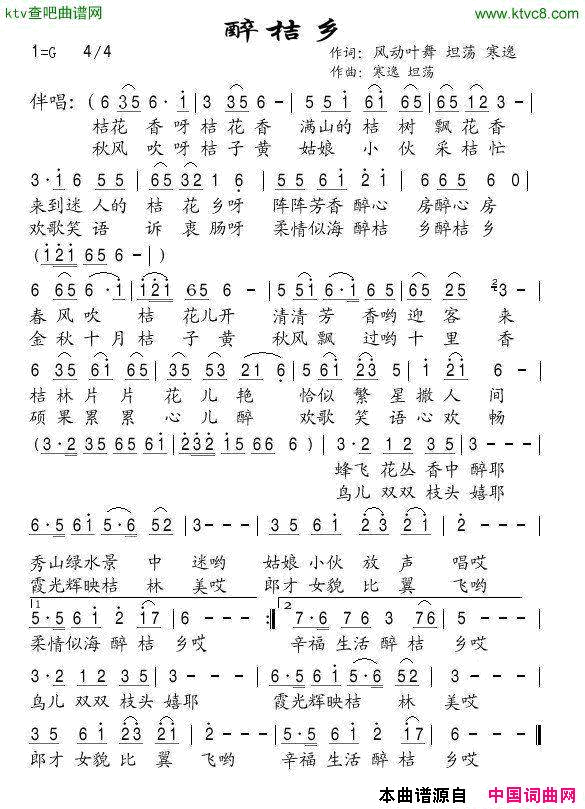 ktv查吧曲谱网
www.ktvc8.com
醉桔乡
1=G 4/4
作词：风动叶舞 坦荡 寒逸
作曲：寒逸 坦荡
伴唱：(6 35 6·i|3 35 6 -|5 551 6i65|65 12 3 -|
桔花 香呀 桔花香 满山的 桔 树 飘花香
秋风 吹呀 桔子黄 姑娘 小 伙 采桔忙
3·i6 55|65 32 1 6|55 51 6i 2i|6 65 6 0|
来到迷 人的 桔 花 乡呀 阵阵芳香醉心 房醉心房
欢歌笑 语 诉 衷 肠呀 柔情似海醉桔 乡醉桔乡
(i2i 65 6 -)
6 65 6·i|i·2i 65 6 -|5 51 6·i|6 65 25 3 -|
春风吹 桔 花儿开 清清芳 香哟迎 客 来
金秋十月桔 子 黄 秋风飘 过哟十 里 香
6 35 35 3|35 53 2216|5 6i 23 53|2 1 2i 6 -|
桔林片片 花 儿 艳 恰似 繁 星 撒人 间
硕果累累 心 儿 醉 欢歌 笑 语心欢 畅
(3·2 35 65 6i|232 1566 6 -)|3·2 12 35|3---|
蜂飞 花丛 香中 醉耶
鸟儿 双双 枝头 嬉耶
6·5 6i 5·6 52|3---|6·5 6i 23 2i|2---|
秀山绿水景 中 迷哟 姑娘小伙 放 声 唱哎
霞光辉映桔 林 美哎 郎才女貌 比 翼 飞哟
1 5·5 6i 2 i7|6---:‖2 7·6 76 3 76|5---|
柔情似海 醉 桔 乡哎 辛福 生活 醉 桔 乡哎
3·2 12 35|3---|6·5 6i 5·6 52|3---|
鸟儿 双双 枝头 嬉耶 霞光辉映桔 林 美哎
35 6i 23 2i|2---|5·5 6i 2 i7|6---‖
郎才 女貌 比 翼 飞哟 辛福 生活 醉 桔 乡哎
本曲谱源自 中国词曲网